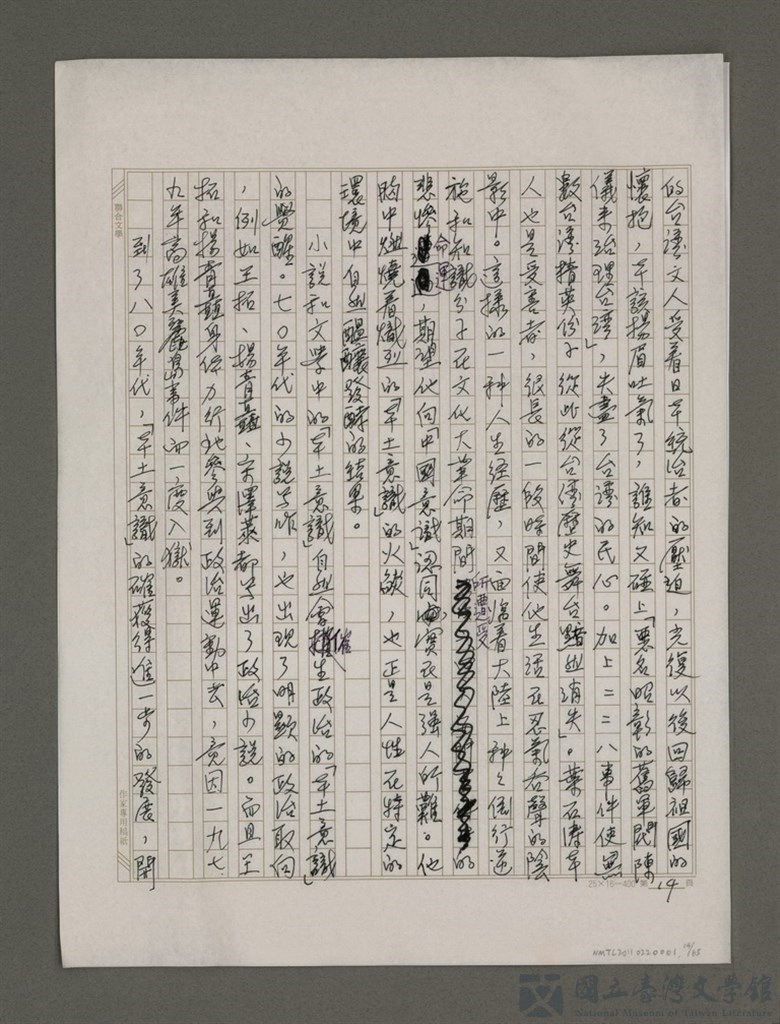 的台湾文人受着日本統治者的壓迫，光復以後回歸祖國的
懷抱，本該揚眉吐氣了，誰知又碰上「惡名昭彰的舊軍閥陳
儀來治理台湾」，失盡了台湾的民心。加上二二八事件使無
數台湾精英份子從此從台湾歷史舞台黯然消失」。葉石濤本
人也是受害者，很長的一段時間使他生活在忍氣吞聲的陰
影中。這樣的一種人生經歷，又面臨着大陸上種々倒行逆
施和知識分子在文化大革命期間所遭受的
悲慘命運，期望他向「中國意識」認同確實在是强人所難。他
胸中燃燒着熾烈的「本土意識」的火燄，也正是人性在特定的
環境中自然醞釀發酵的結果。
小說和文學中的「本土意識」自然會催生政治的「本土意識」
的覺醒。七〇年代的小說寫作，也出現了明顯的政治取向
，例如王拓、楊青矗、宋澤萊都寫出了政治小說。而且王
拓和楊青矗身体力行地參與到政治運動中去，竟因一九七
九年高雄美麗島事件而一度入獄。
到了八〇年代，「本土意識」的確獲得進一步的發展，開
聯合文學
作家專用稿紙
25×16=400 第 14 頁
NMTL20110220001 14/65
國立臺灣文學館
National Museum of Taiwan Literature